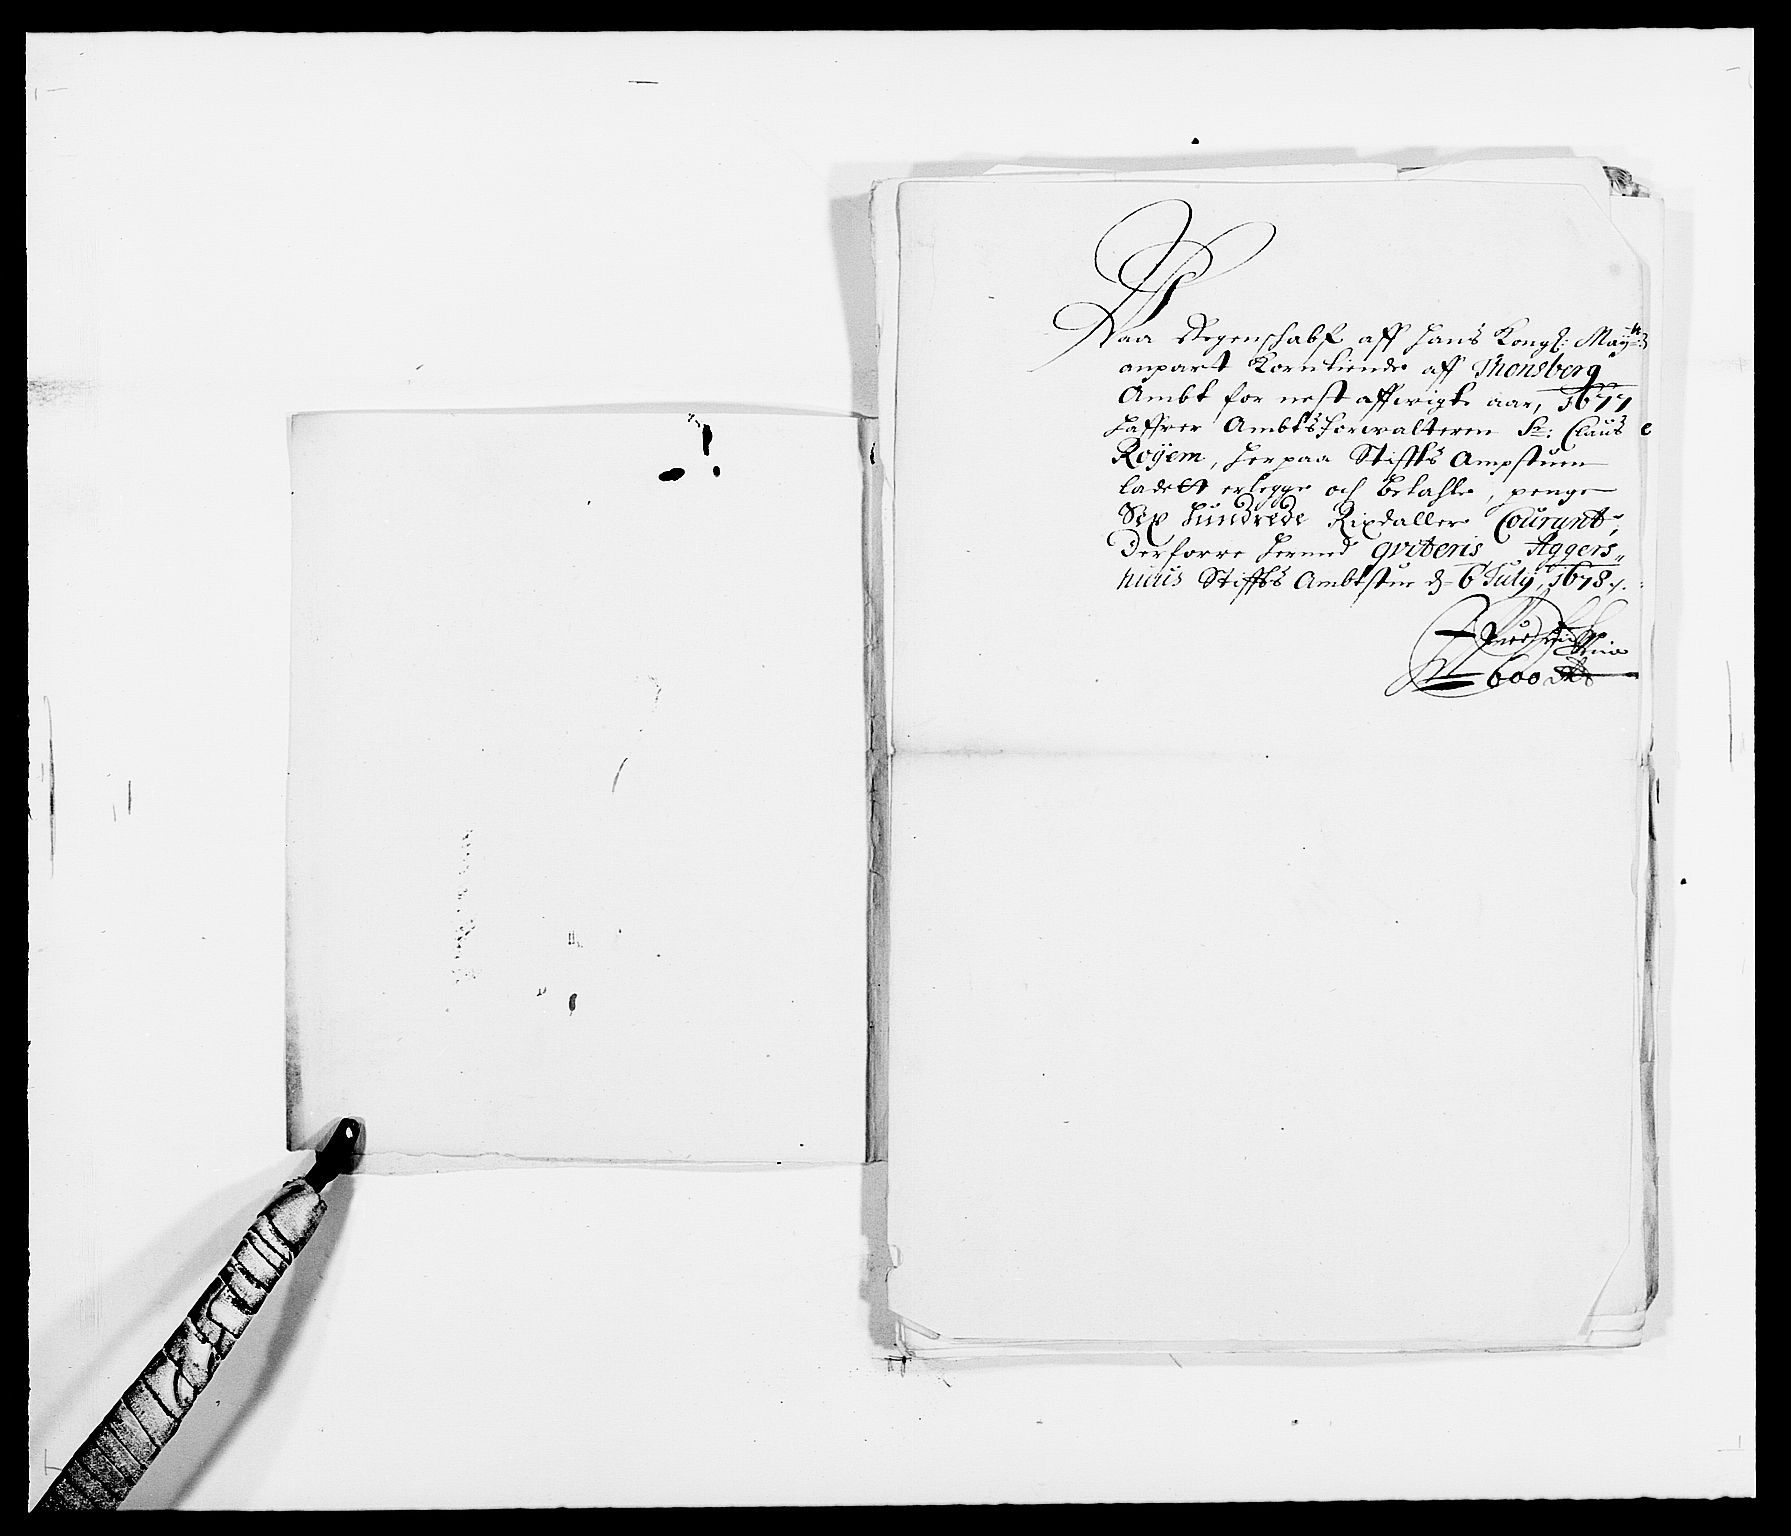 Paa Regenschabß aff Hans Kongl: May:ts
anpart Korntiende aff Thonsberg
Ambt for nest affvigte aar, 1677
Haffver Ambtsforvalteren Sr: Claus
Røyem, her paa Stiffts Ampstuen
ladett erlegge och betahle, penge
Sex Hundrede Rixdaller Courant,
Derforre hermed qviteris, Aggers,,
huus Stiffts Ambtstue d- 6 July, 1678
600 Rd